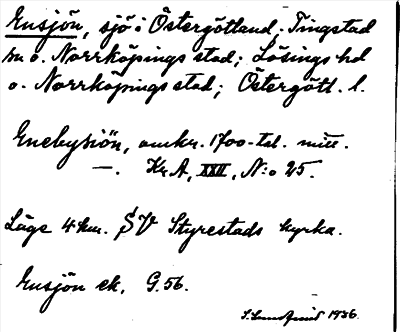 Ensjön, sjö i Östergötland, Tingstad
sn o. Norrköpings stad; Lösings hd
o. Norrköpings stad; Östergötl. l.
Enebysiön, omkr. 1700-tal. mitt.
—. Kr.A, XXII, N:o 25.
Läge 4 km. SV Styrestads kyrka.
Ensjön ek. G.56.
1936